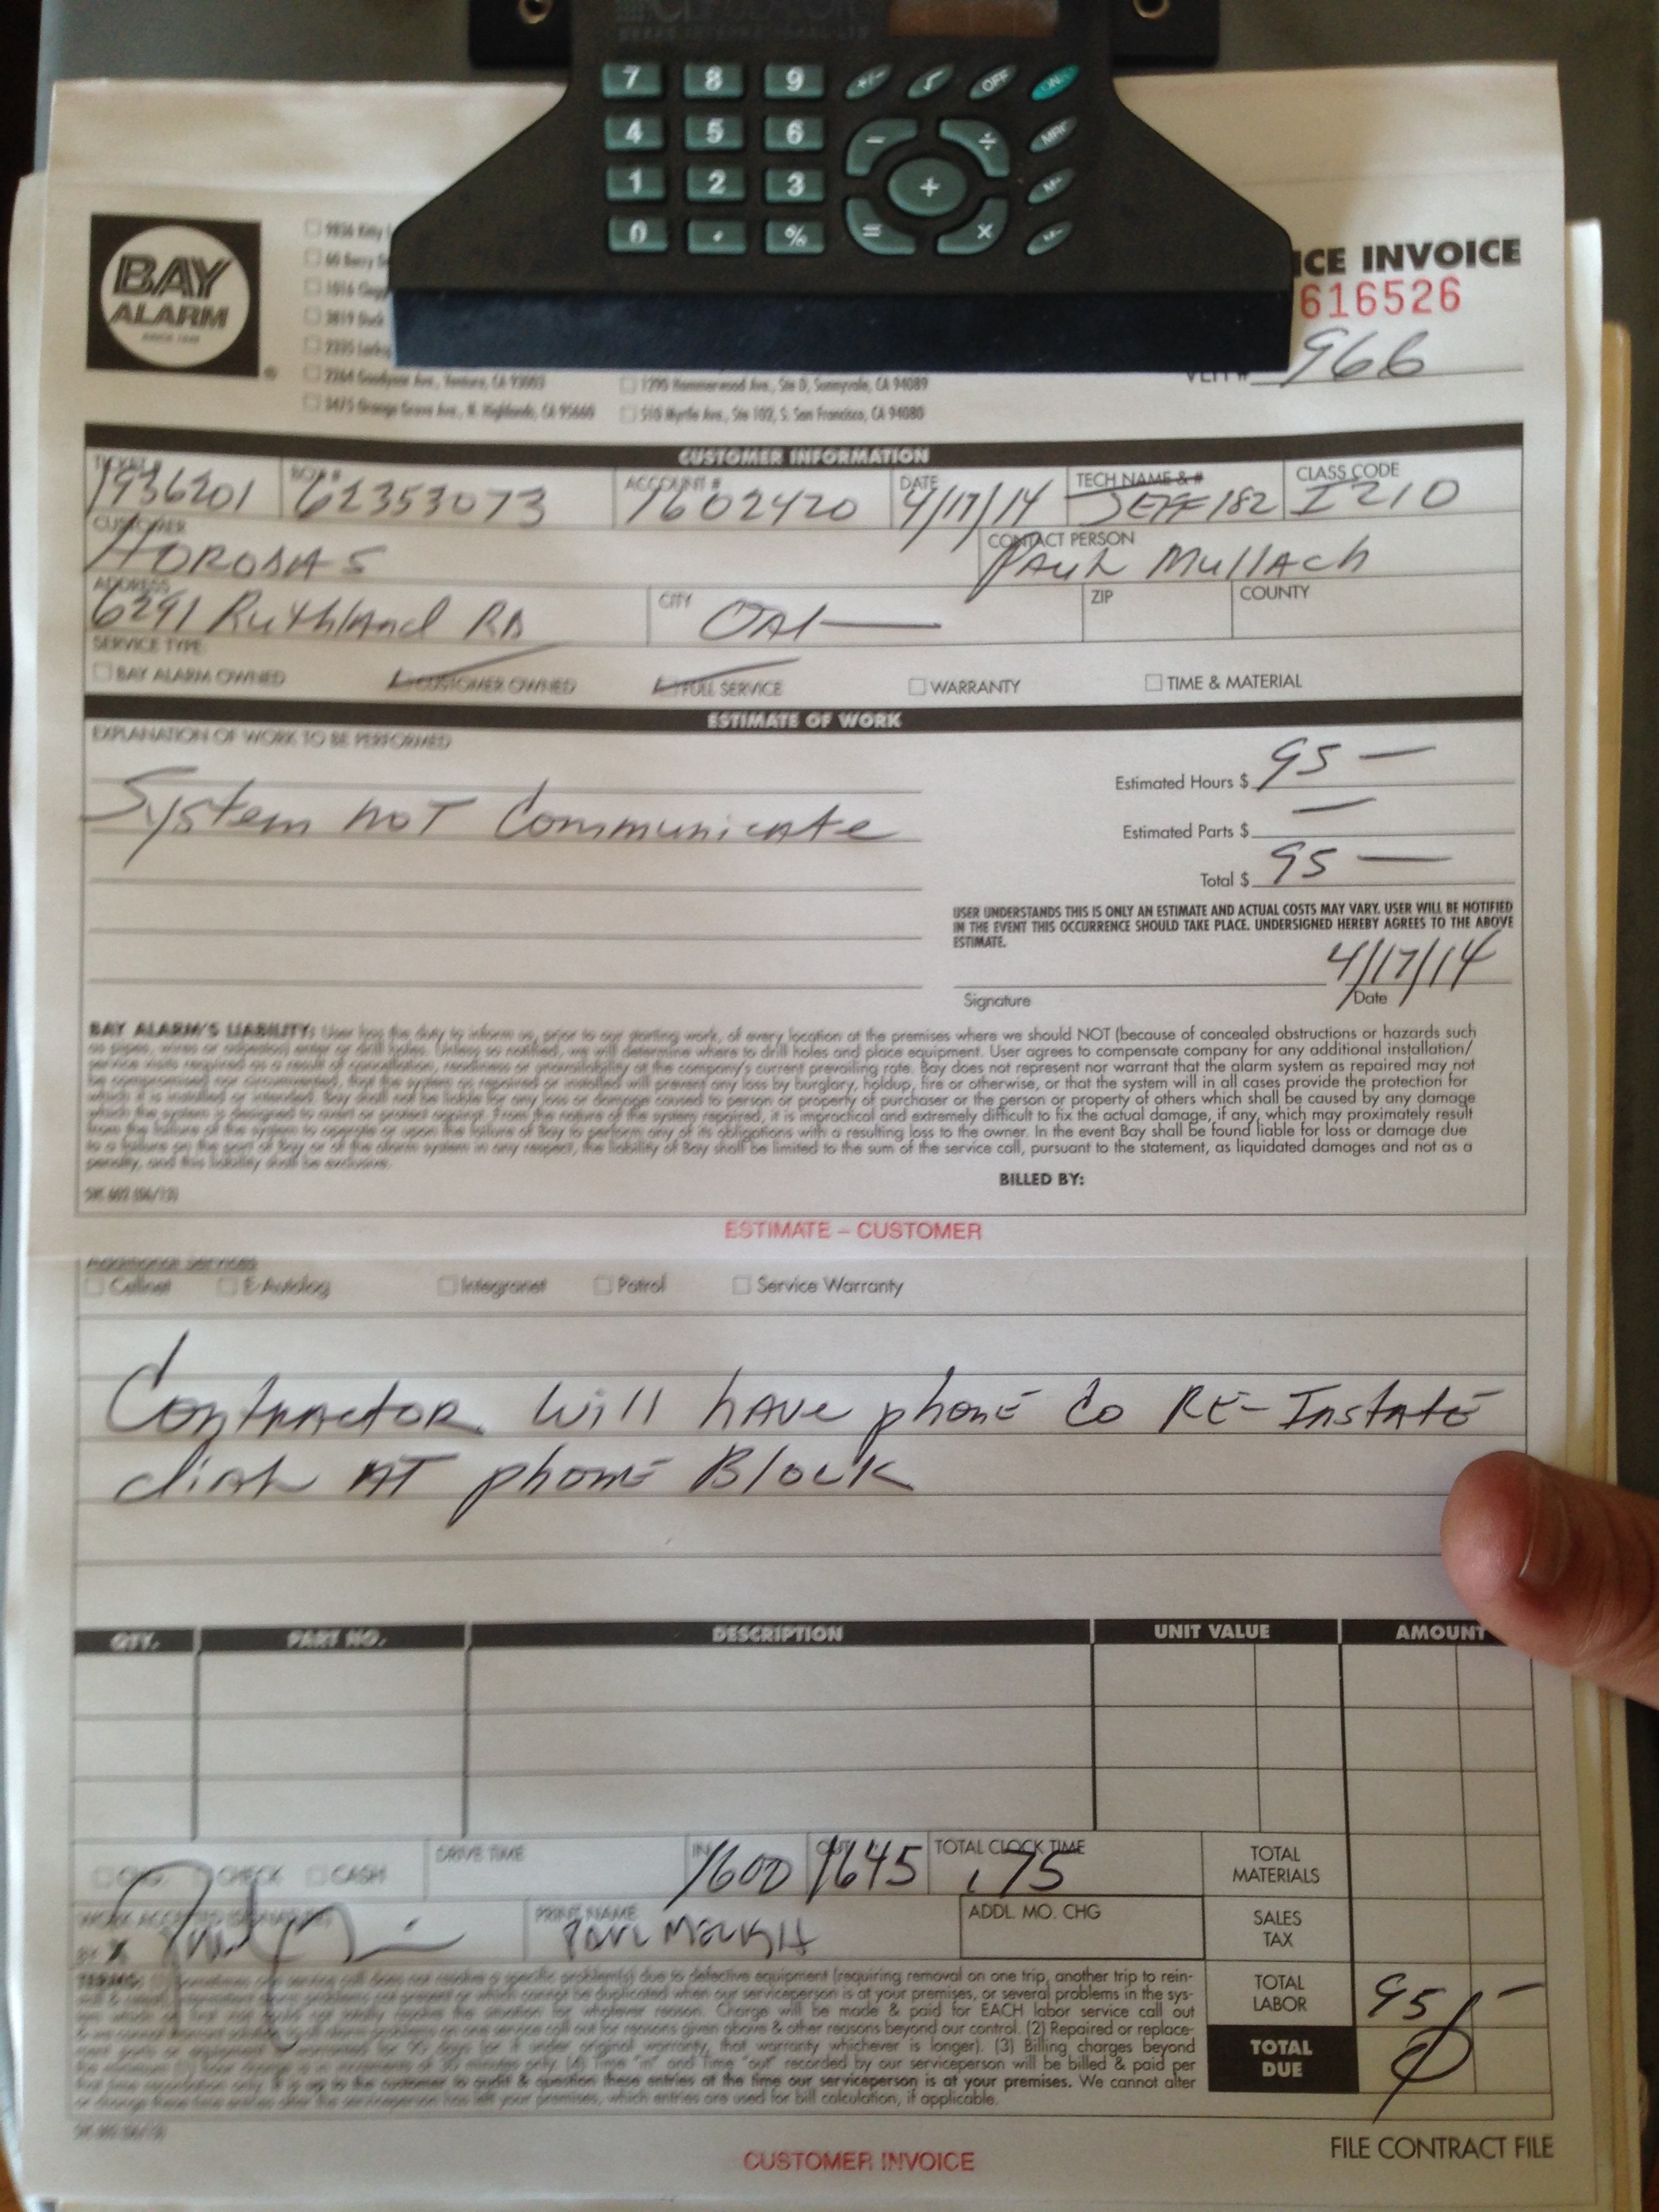 7 8 9 +/- √ OFF ON/C
4 5 6 - ÷ MRC
1 2 3 + M+
0 . % = × M-
BAY
ALARM
SINCE 1946
ICE INVOICE
616526
966
2264 Goodyear Ave., Ventura, CA 93003
1295 Hammerwood Ave., Ste D, Sunnyvale, CA 94089
5475 Orange Grove Ave., N. Highlands, CA 95660
510 Myrtle Ave., Ste 102, S. San Francisco, CA 94080
CUSTOMER INFORMATION
TICKET # BOX # ACCOUNT # DATE TECH NAME & # CLASS CODE
1936201 62353073 1602420 4/17/14 JEFF 182 I210
CUSTOMER CONTACT PERSON
Paul Mullach
ADDRESS CITY ZIP COUNTY
6291 Ruthland RD OAK
SERVICE TYPE
BAY ALARM OWNED CUSTOMER OWNED FULL SERVICE WARRANTY TIME & MATERIAL
ESTIMATE OF WORK
EXPLANATION OF WORK TO BE PERFORMED
System NOT Communicate
Estimated Hours $ 95 —
Estimated Parts $ —
Total $ 95 —
USER UNDERSTANDS THIS IS ONLY AN ESTIMATE AND ACTUAL COSTS MAY VARY. USER WILL BE NOTIFIED
IN THE EVENT THIS OCCURRENCE SHOULD TAKE PLACE. UNDERSIGNED HEREBY AGREES TO THE ABOVE
ESTIMATE.
4/17/14
Signature Date
BAY ALARM'S LIABILITY: User has the duty to inform us, prior to our starting work, of every location at the premises where we should NOT (because of concealed obstructions or hazards such
as pipes, wires or asbestos) enter or drill holes. Unless so notified, we will determine where to drill holes and place equipment. User agrees to compensate company for any additional installation/
service visits required as a result of cancellation, readiness or unavailability at the company's current prevailing rate. Bay does not represent nor warrant that the alarm system as repaired may not
be compromised nor circumvented, that the system as repaired or installed will prevent any loss by burglary, holdup, fire or otherwise, or that the system will in all cases provide the protection for
which it is installed or intended. Bay shall not be liable for any loss or damage caused to person or property of purchaser or the person or property of others which shall be caused by any damage
which the system is designed to avert or protect against. From the nature of the system repaired, it is impractical and extremely difficult to fix the actual damage, if any, which may proximately result
from the failure of the system to operate or upon the failure of Bay to perform any of its obligations with a resulting loss to the owner. In the event Bay shall be found liable for loss or damage due
to a failure on the part of Bay or of the alarm system in any respect, the liability of Bay shall be limited to the sum of the service call, pursuant to the statement, as liquidated damages and not as a
penalty, and this liability shall be exclusive.
BILLED BY:
ESTIMATE – CUSTOMER
Additional Services
Cellnet E-Autolog Integranet Patrol Service Warranty
Contractor will have phone Co RE-Instate
dial AT phone Block
QTY. PART NO. DESCRIPTION UNIT VALUE AMOUNT
CHG. CHECK CASH DRIVE TIME IN 1600 OUT 1645 TOTAL CLOCK TIME .75 TOTAL
MATERIALS
WORK ACCEPTED (SIGNATURE) PRINT NAME ADDL. MO. CHG SALES
TAX
BY X
TOTAL
LABOR 95 —
TOTAL
DUE Ø
(requiring removal on one trip, another trip to rein-
when our serviceperson is at your premises, or several problems in the sys-
Charge will be made & paid for EACH labor service call out
reasons given above & other reasons beyond our control. (2) Repaired or replace-
that warranty whichever is longer). (3) Billing charges beyond
(4) Time "in" and Time "out" recorded by our serviceperson will be billed & paid per
these entries at the time our serviceperson is at your premises. We cannot alter
your premises, which entries are used for bill calculation, if applicable.
FILE CONTRACT FILE
CUSTOMER INVOICE